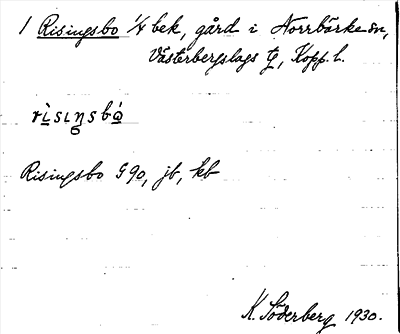 1 Risingsbo 1/4 bek, gård i Norrbärke sn,
Västerbergslags tg, Kopp. l.
rìsıŋsbó
Risingsbo G 90, jb, kb
K. Söderberg 1930.